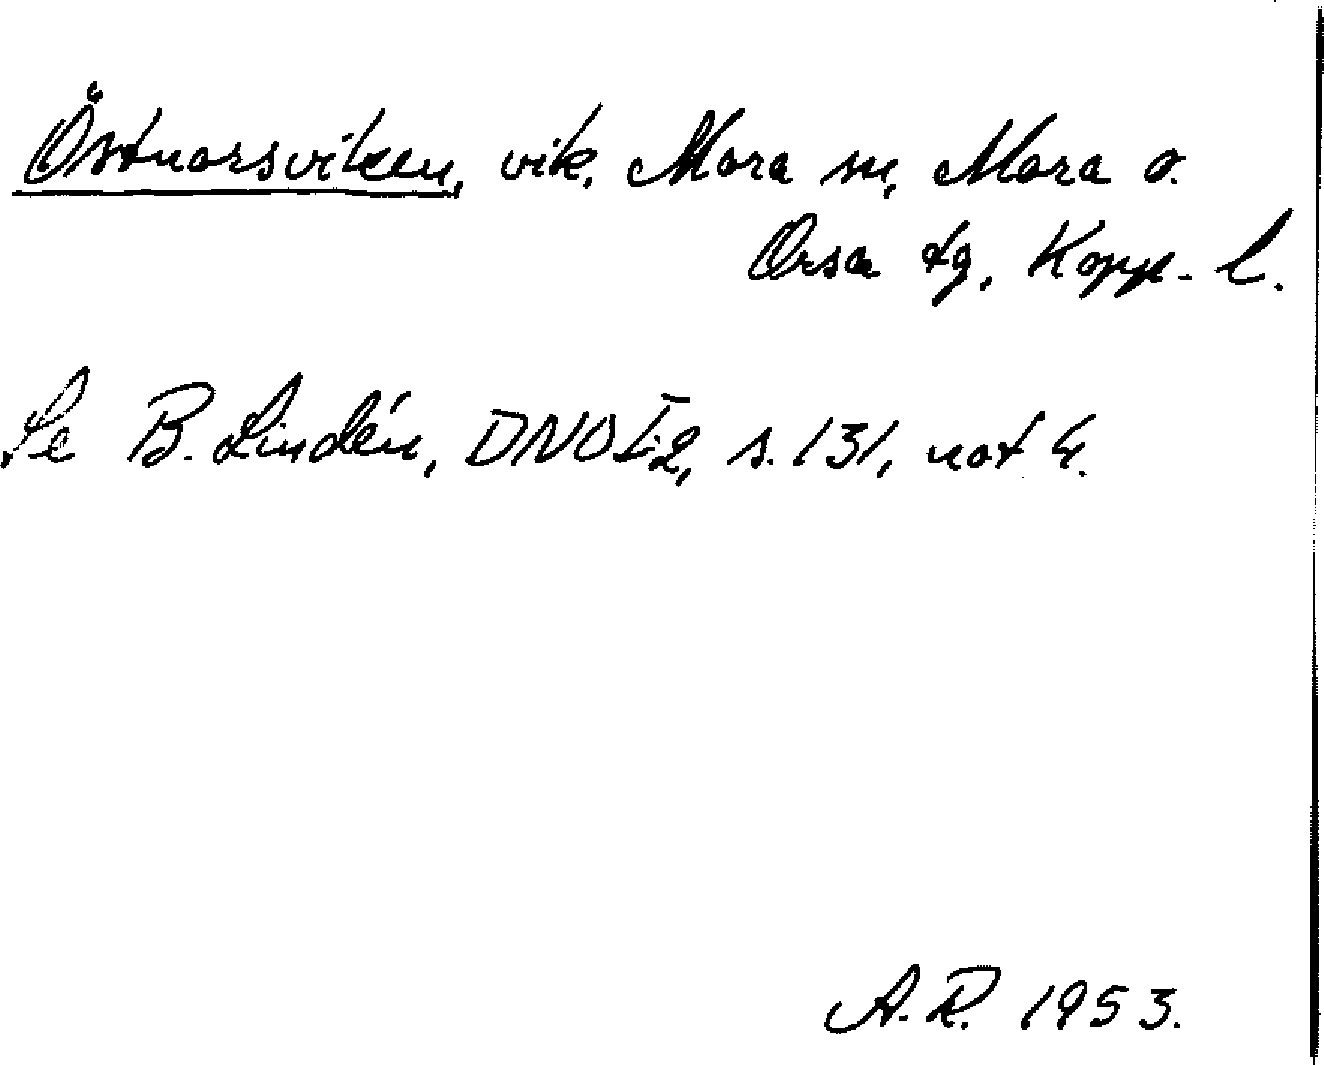 Östnorsviken, vik, Mora sn, Mora o.
Orsa tg, Kopp. l.
Se B. Lindén, DNO I:2, s. 131, not 4.
A.R. 1953.